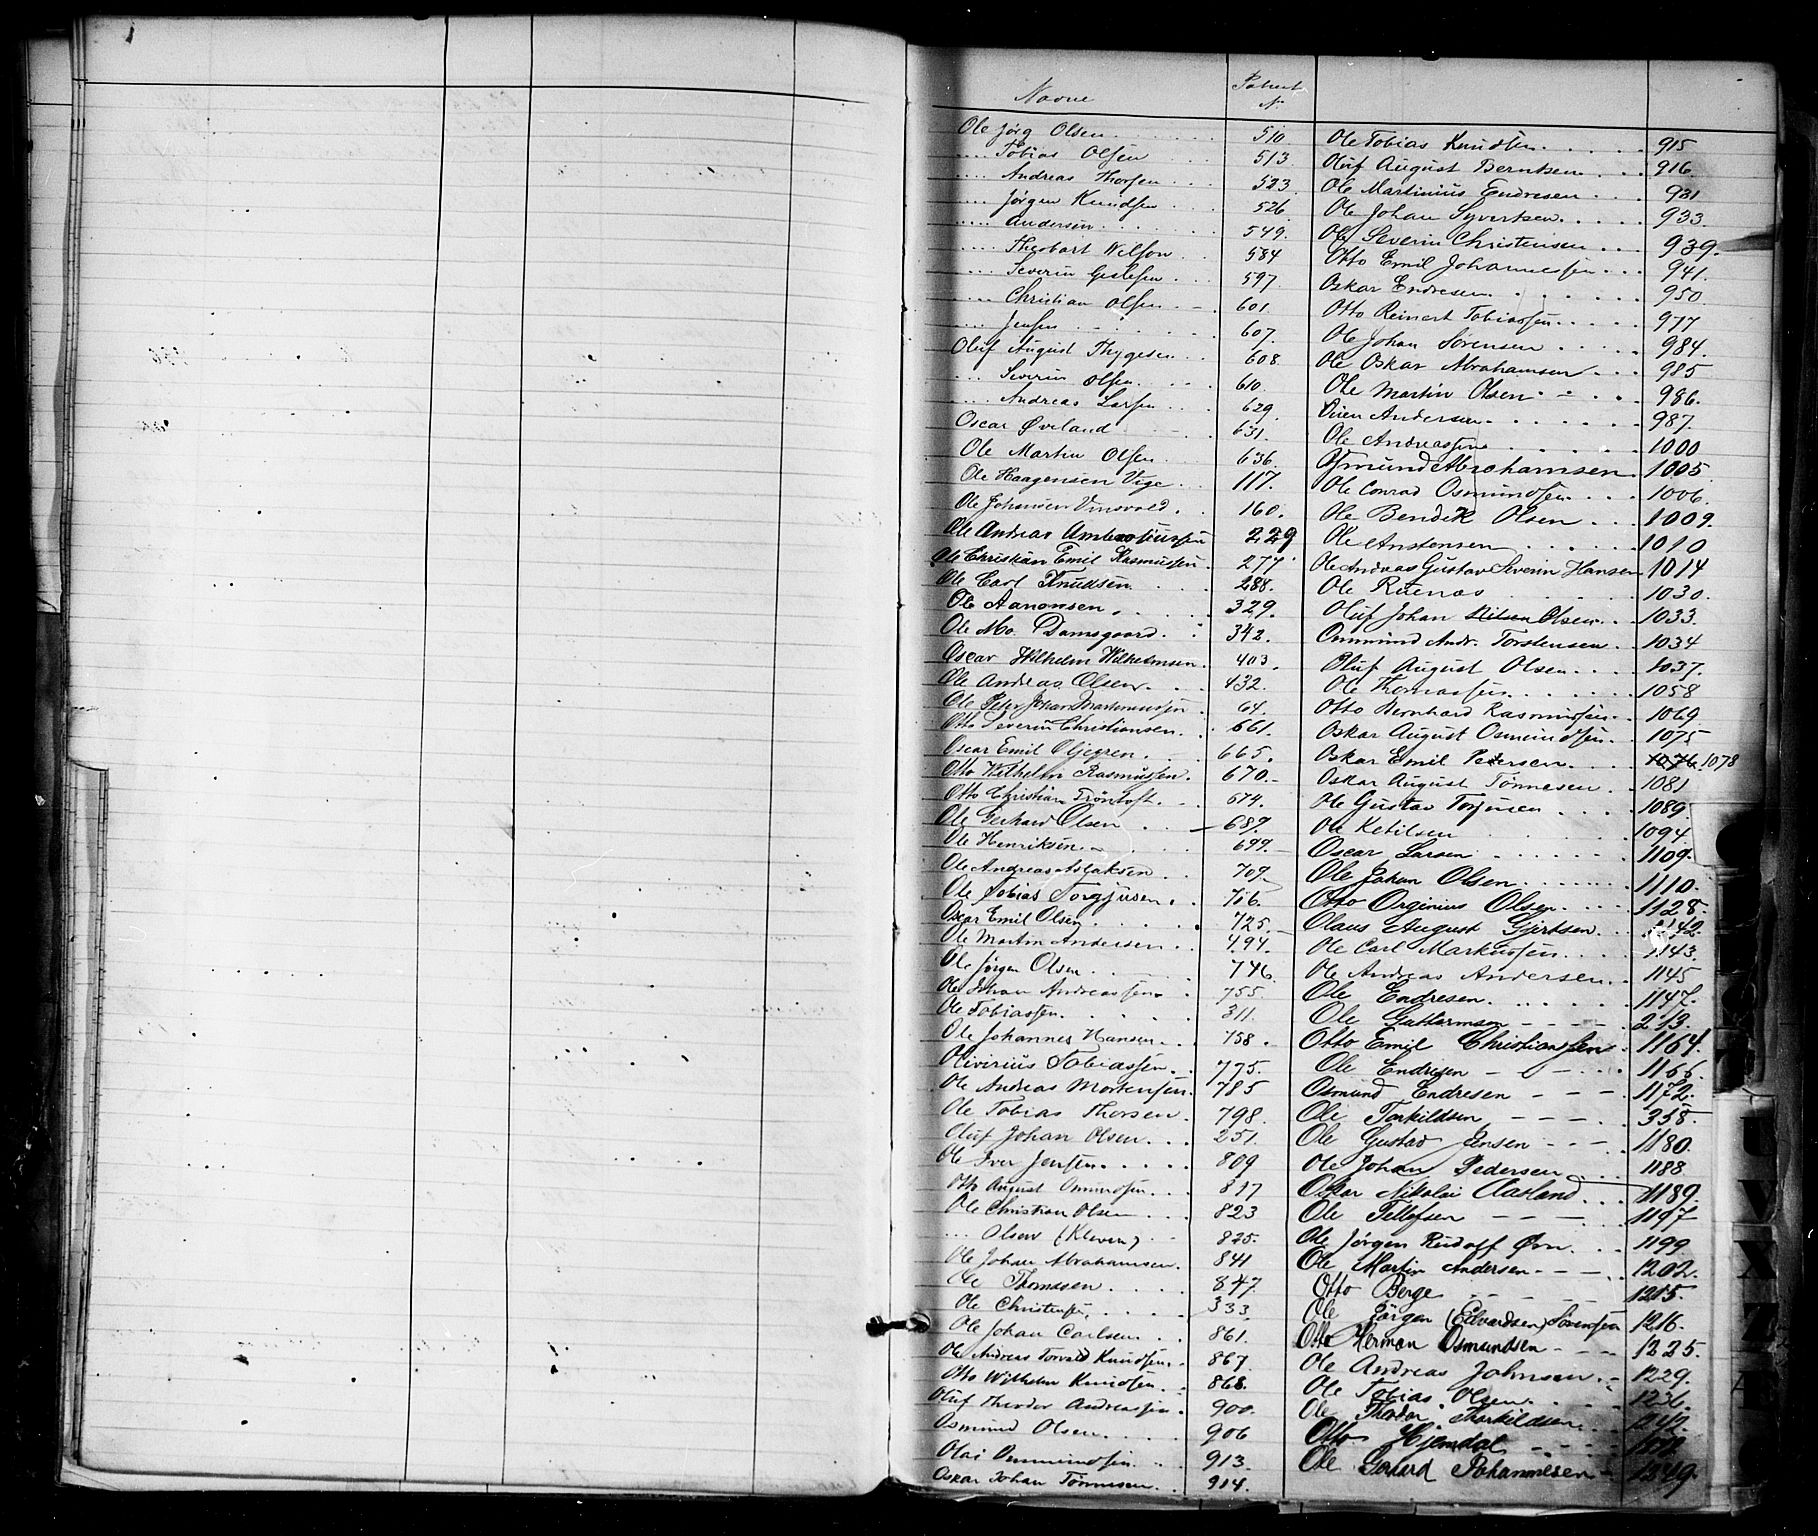 Navne Patent N.
Ole Jörg Olsen 510
.... Tobias Olsen 513
.... Andreas Thorsen 523
.... Jörgen Knudsen 526
.... Andersen 549
.... Theobart Wilson 584
.... Severin 597
.... Christian Olsen 601
.... Jensen 607
Oluf August Thygesen 608
.... Severin Olsen 610
.... Andreas Larsen 629
Oscar Øverland 631
Ole Martin Olsen 636
Ole Haagensen Vige 117
Ole Johansen 160
Ole Andreas Ambrosiussen 229
Ole Christian Emil Rasmussen 277
Ole Carl Knudsen 288
Ole Aanonsen 329
Ole Mo. Damsgaard 342
Oscar Wilhelm Wilhelmsen 403
Ole Andreas Olsen 432
Ole Peter Johan 64
Otto Severin Christiansen 661
Oscar Emil Oljegren 665
Otto Wilhelm Rasmussen 670
Otto Christian Fröntoft 674
Ole Gerhard Olsen 687
Ole Henriksen 699
Ole Andreas Aslaksen 709
Ole Tobias Torgjusen 716
Oscar Emil Olsen 725
Ole Martin Andersen 494
Ole Jörgen Olsen 746
Ole Johan Andreassen 755
Ole Tobiassen 311
Ole Johannes Hansen 758
Oliverius Tobiassen 775
Ole Andreas Mortensen 785
Ole Tobias Thorsen 798
Oluf Johan Olsen 251
Ole Iver Jensen 809
Otto August Omundsen 817
Ole Christian Olsen 823
... Olsen (Kleven) 825
Ole Johan Abrahamsen 841
Ole Thomesen 847
Ole Christensen 333
Ole Johan Carlsen 861
Ole Andreas Torvald Knudsen 867
Otto Wilhelm Knudsen 868
Oluf Theodor Andreassen 900
Osmund Olsen 906
Olai Ommundsen 913
Oskar Johan Tönnesen 914
Ole Tobias Knudsen 915
Oluf August Berntsen 916
Ole Martinius Endresen 931
Ole Johan Syvertsen 933
Ole Severin Christensen 939
Otto Emil Johannessen 941
Oskar Endresen 950
Otto Reinert Tobiassen 977
Ole Johan Sörensen 984
Ole Oskar Abrahamsen 985
Ole Martin Olsen 986
Andersen 987
Ole Andreassen 1000
Osmund Abrahamsen 1005
Ole Conrad Osmundsen 1006
Ole Bendik Olsen 1009
Ole Anstensen 1010
Ole Andreas Gustav Severin Hansen 1014
Ole Ruenas 1030
Oluf Johan Nilsen Olsen 1033
Ommund Andr. Torstensen 1034
Oluf August Olsen 1037
Ole Thomassen 1058
Otto Bernhard Rasmussen 1069
Oskar August Osmundsen 1075
Oskar Emil Pedersen 1076 1078
Oskar August Tönnesen 1081
Ole Gustav Torjusen 1089
Ole Ketilsen 1094
Oscar Larsen 1109
Ole Johan Olsen 1110
Otto Orginius Olsen 1128
Olaus August Gjertsen 1142
Ole Carl Markussen 1143
Ole Andreas Andersen 1145
Ole Endresen 1147
Ole Guttormsen 213
Otto Emil Christianssen 1164
Ole Endresen 1166
Osmund Endresen 1172
Ole Torkildsen 358
Ole Gustav Jensen 1180
Ole Johan Pedersen 1188
Oskar Nikolai Aasland 1189
Ole Tellefsen 1197
Ole Jörgen Rudolf Örn 1199
Ole Martin Andersen 1202
Otto Berge 1215
Ole Jörgen (Edvardsen) Sörensen 1216
Otto Herman Osmundsen 1225
Ole Andreas Johnsen 1229
Ole Tobias Olsen 1236
Ole Theodor Thorkildsen 1242
Otto Hjemdal
Ole Gerhard Johannesen 1349
U
V
X
Z